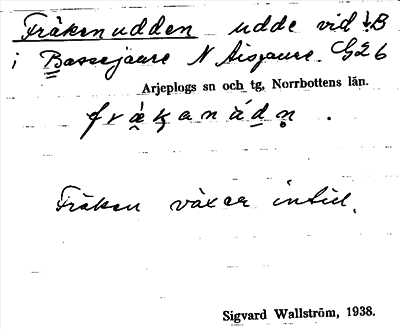 Fräkenudden udde vid ↓B
i Bassejaure N Aisjaure. G26
Arjeplogs sn och tg, Norrbottens län.
fràḱanádn̥ .
Fräken växer intill.
Sigvard Wallström, 1938.